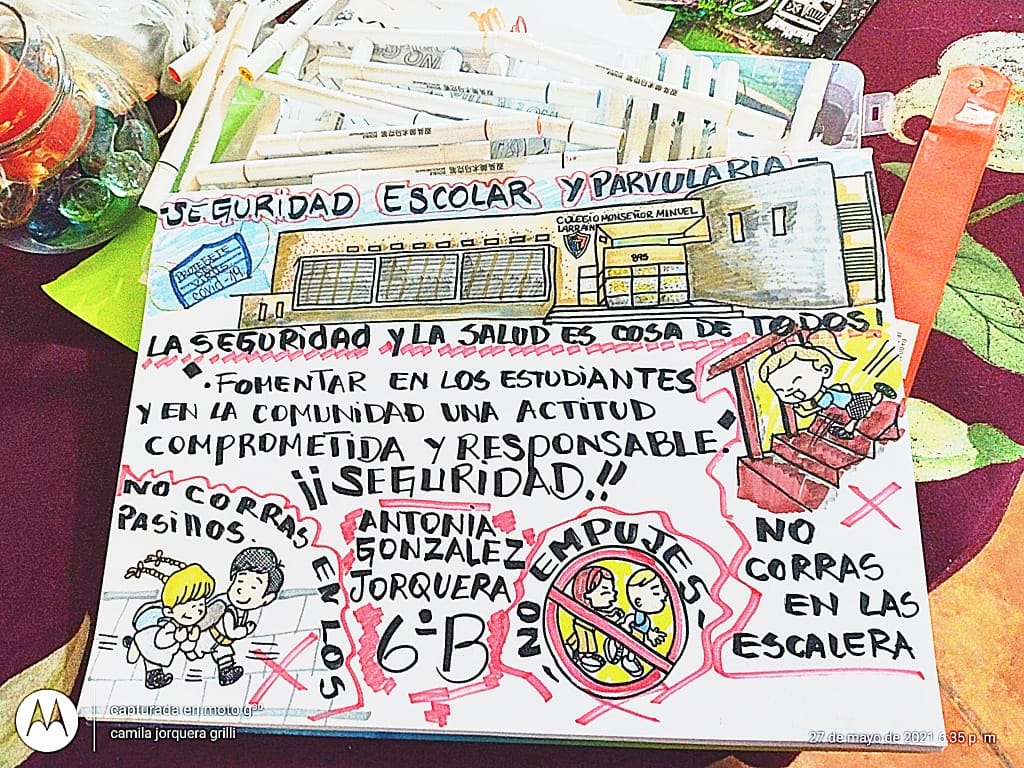 SEGURIDAD ESCOLAR Y PARVULARIA
COLEGIO MONSEÑOR MINUEL
LARRAIN
895
PROTEGETE
COVID-19
LA SEGURIDAD Y LA SALUD ES COSA DE TODOS!
· FOMENTAR EN LOS ESTUDIANTES
Y EN LA COMUNIDAD UNA ACTITUD
COMPROMETIDA Y RESPONSABLE.
¡¡SEGURIDAD!!
NO CORRAS
EN LOS
PASILLOS.
ANTONIA
GONZALEZ
JORQUERA
6ºB
NO EMPUJES
NO
CORRAS
EN LAS
ESCALERA
capturada en moto g³⁰
camila jorquera grilli
27 de mayo de 2021 6:35 p. m.